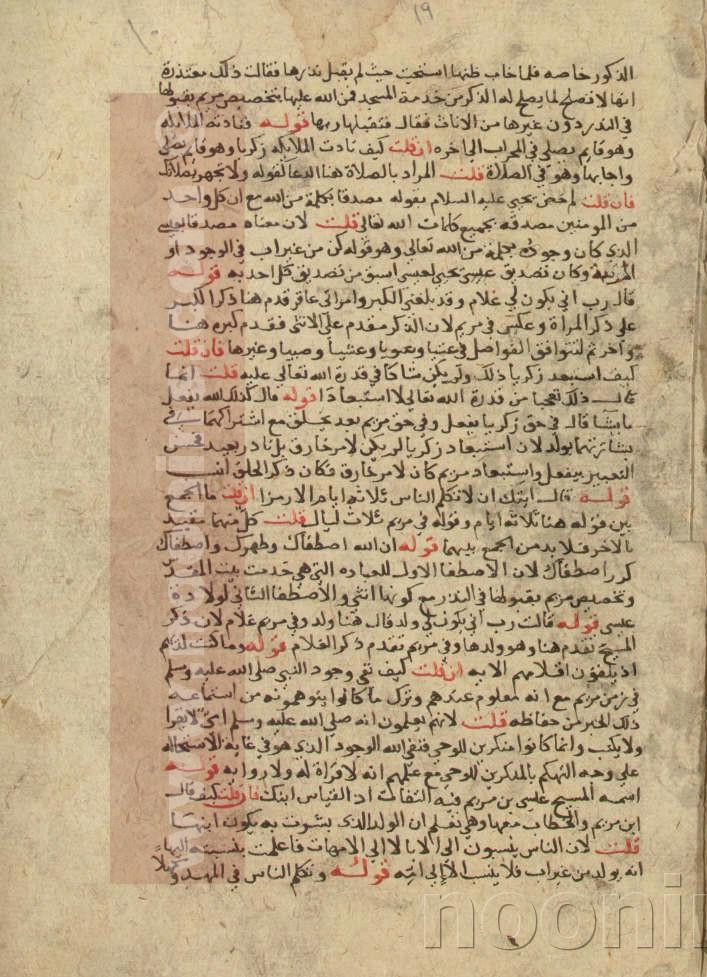 ١٩
الذكور خاصه فلما خاب ظنها استحيت حيث لم يقبل نذرها فقالت ذلك معتذرة
انها لا تصلح لما يصلح له الذكر من خدمة المسجد فمن الله عليها بتخصيص مريم بقبولها
في النذر دون غيرها من الاناث فقال فتقبلها ربها قوله فنادته الملائكه
وهو قايم يصلي في المحراب الي اخره ان قلت كيف نادت الملائكه زكريا وهو قايم يصلي
واجابها وهو في الصلاة قلت المراد بالصلاة هنا الدعا لقوله ولا تجهر بصلاتك
فان قلت لم خص يحيي عليه السلام بقوله مصدقا بكلمة من الله مع ان كل واحد
من المومنين مصدقه بجميع كلمات الله تعالي قلت لان معناه مصدقا بعيسي
الذي كان وجوده بكلمة من الله تعالي وهو قوله كن من غير اب في الوجود او
المرتبة وكان تصديق يحيي لعيسي اسبق من تصديق كل احد به قوله
قال رب اني يكون لي غلام وقد بلغني الكبر وامراتي عاقر قدم هنا ذكر الكبر
علي ذكر المراة وعكس في مريم لان الذكر مقدم علي الانثي فقدم كبره هنا
واخر ثم لتتوافق الفواصل في عتيا وسويا وعشيا وصبيا وغيرها فان قلت
كيف استبعد زكريا ذلك ولم يكن شاكا في قدرة الله تعالي عليه قلت انما
قال ذلك تعجبا من قدرة الله تعالي لا استبعادا قوله قال كذلك الله يفعل
ما يشا قال في حق زكريا يفعل وفي حق مريم بعد يخلق مع اشتراكهما في
بشارتهما بولد لان استبعاد زكريا لم يكن لامر خارق بل نادر بعيد فحسن
التعبير بيفعل واستبعاد مريم كان لامر خارق فكان ذكر الخلق انسب
قوله قال ايتك ان لا تكلم الناس ثلاثه ايام الا رمزا ان قلت ما الجمع
بين قوله هنا ثلاثه ايام وقوله في مريم ثلاث ليال قلت كل منهما مقيد
بالاخر فلا بد من الجمع بينهما قوله ان الله اصطفاك وطهرك واصطفاك
كرر اصطفاك لان الاصطفا الاول للعباده التي هي خدمت بيت المقدس
وتخصيص مريم بقبولها في النذر مع كونها انثي والاصطفا الثاني لولادة
عيسي قوله قالت رب اني يكون لي ولد قال هنا ولد وفي مريم غلام لان ذكر
المسيح تقدم هنا وهو ولدها وفي مريم تقدم ذكر الغلام قوله وما كنت لديهم
اذ يلقون اقلامهم الايه ان قلت كيف نفي وجود النبي صلي الله عليه وسلم
في زمن مريم مع انه معلوم عندهم وترك ما كانوا يتوهمونه من استماعه
ذلك الخبر من حفاظه قلت لانهم يعلمون انه صلي الله عليه وسلم امي لا يقرا
ولا يكتب وانما كانوا منكرين للوحي فنفي الله الوجود الذي هو في غاية الاستحاله
علي وجه التهكم بالمنكرين للوحي مع علمهم انه لا قراة له ولا روايه قوله
اسمه المسيح عيسي بن مريم فيه التفات اذ القياس ابنك فان قلت كيف قال
ابن مريم والخطاب معها وهي تعلم ان الولد الذي بشرت به يكون ابنها
قلت لان الناس ينسبون الي الابا لا الي الامهات فاعلمت بنسبته اليها
انه يولد من غير اب فلا ينسب الا الي امه قوله ويكلم الناس في المهد وكهلا
noonin